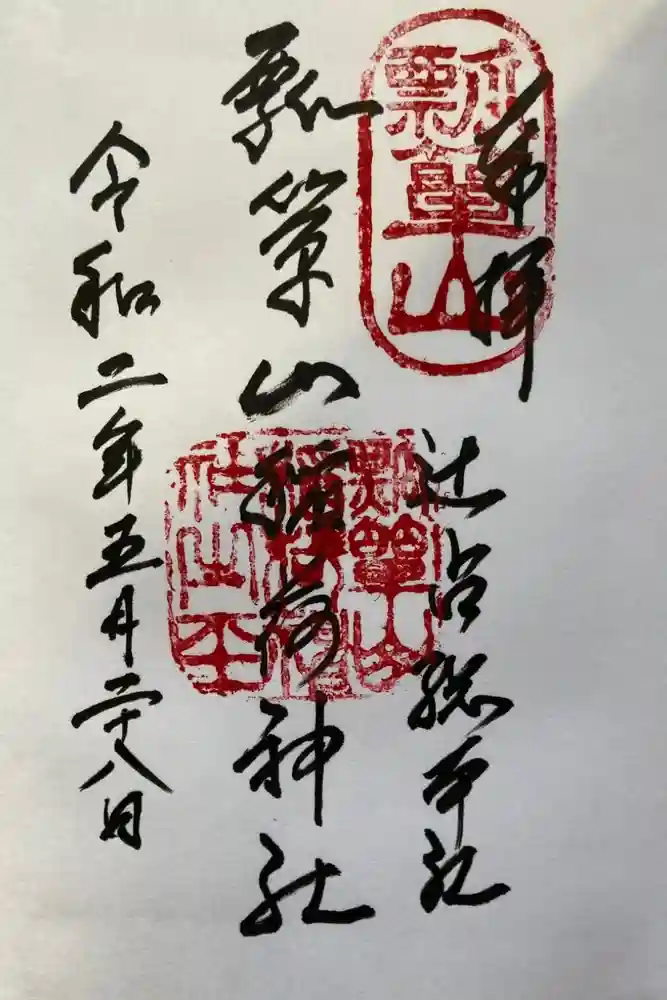 奉拝
瓢簞山
辻占総本社
瓢簞山稲荷神社
瓢簞山
稲荷神
社之玺
令和二年五月二十八日